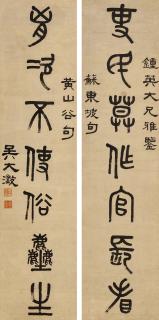 吏民莫作官長看
鍾英大兄雅鑒
蘇東坡句
胷次不使俗塵生
黃山谷句
吳大澂